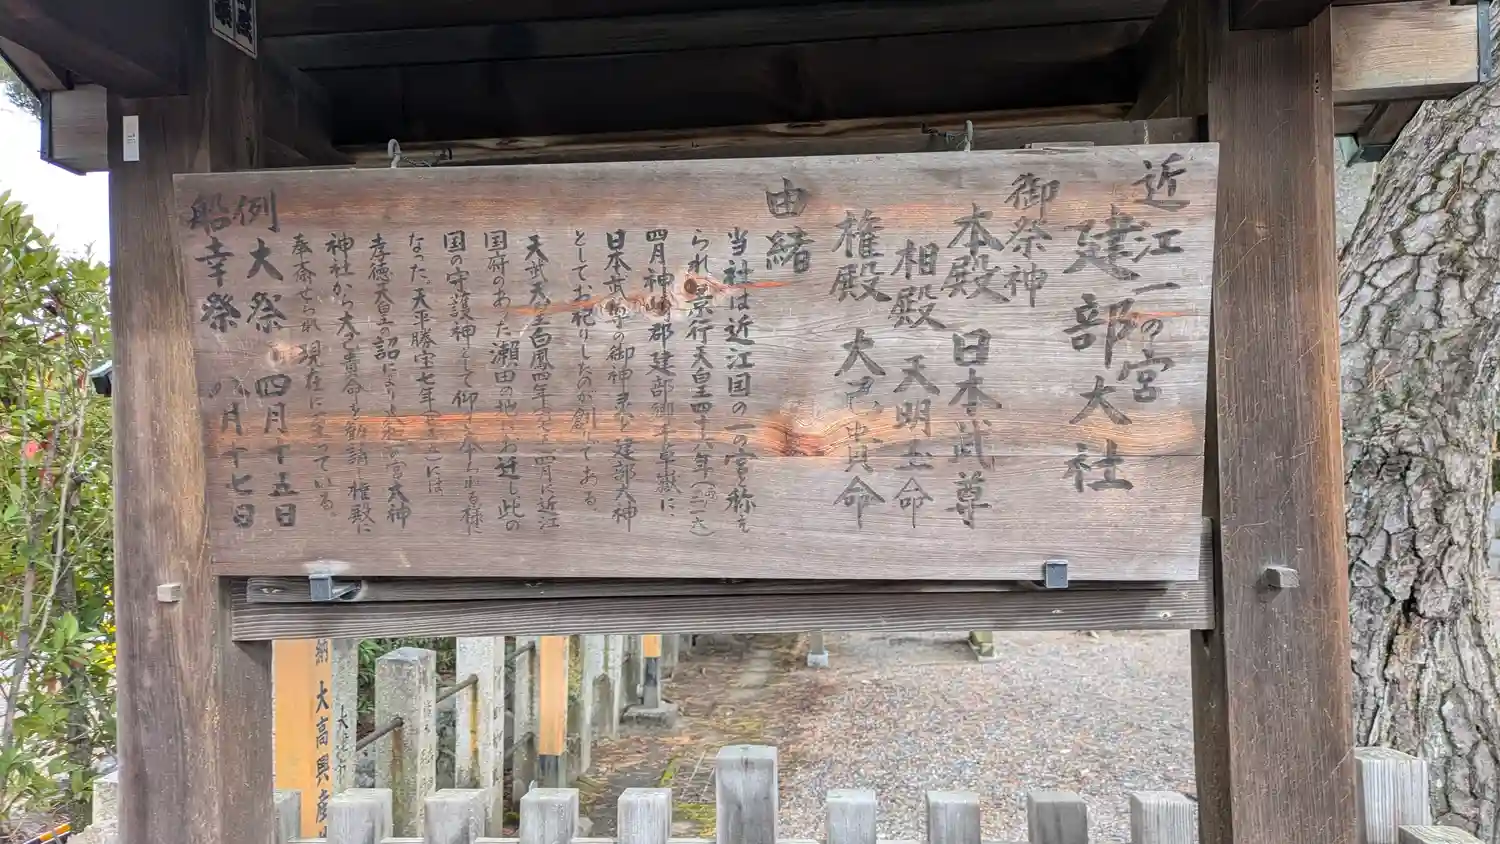 近江一の宮
建部大社
御祭神
本殿 日本武尊
相殿 天明玉命
権殿 大己貴命
由緒
当社は近江国の一の宮と称え
られ景行天皇四十六年(三一六)
四月神崎郡建部郷千草嶽に
日本武尊の御神霊を建部大神
としてお祀りしたのが創りである
天武天皇白鳳四年四月に近江
国府のあった瀬田の地にお迁し此の
国の守護神として仰ぎ奉られる様に
なった。天平勝宝七年には
孝徳天皇の詔により の宮大神
神社から大己貴命を勧請し権殿に
奉斎せられ現在に至っている。
例大祭 四月十五日
船幸祭 八月十七日
納 大高興産